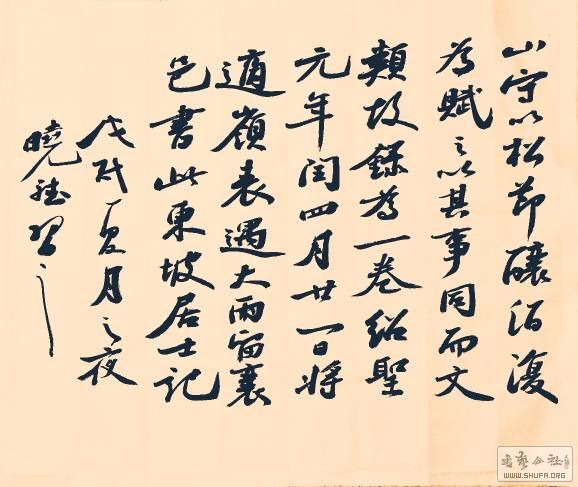 山守以松節釀酒復
為賦之以其事同而文
類故錄為一卷紹聖
元年閏四月廿一日將
適嶺表遇大雨留襄
邑書此東坡居士記
戊戌夏月之夜
曉習之
書藝公社
WWW.SHUFA.ORG